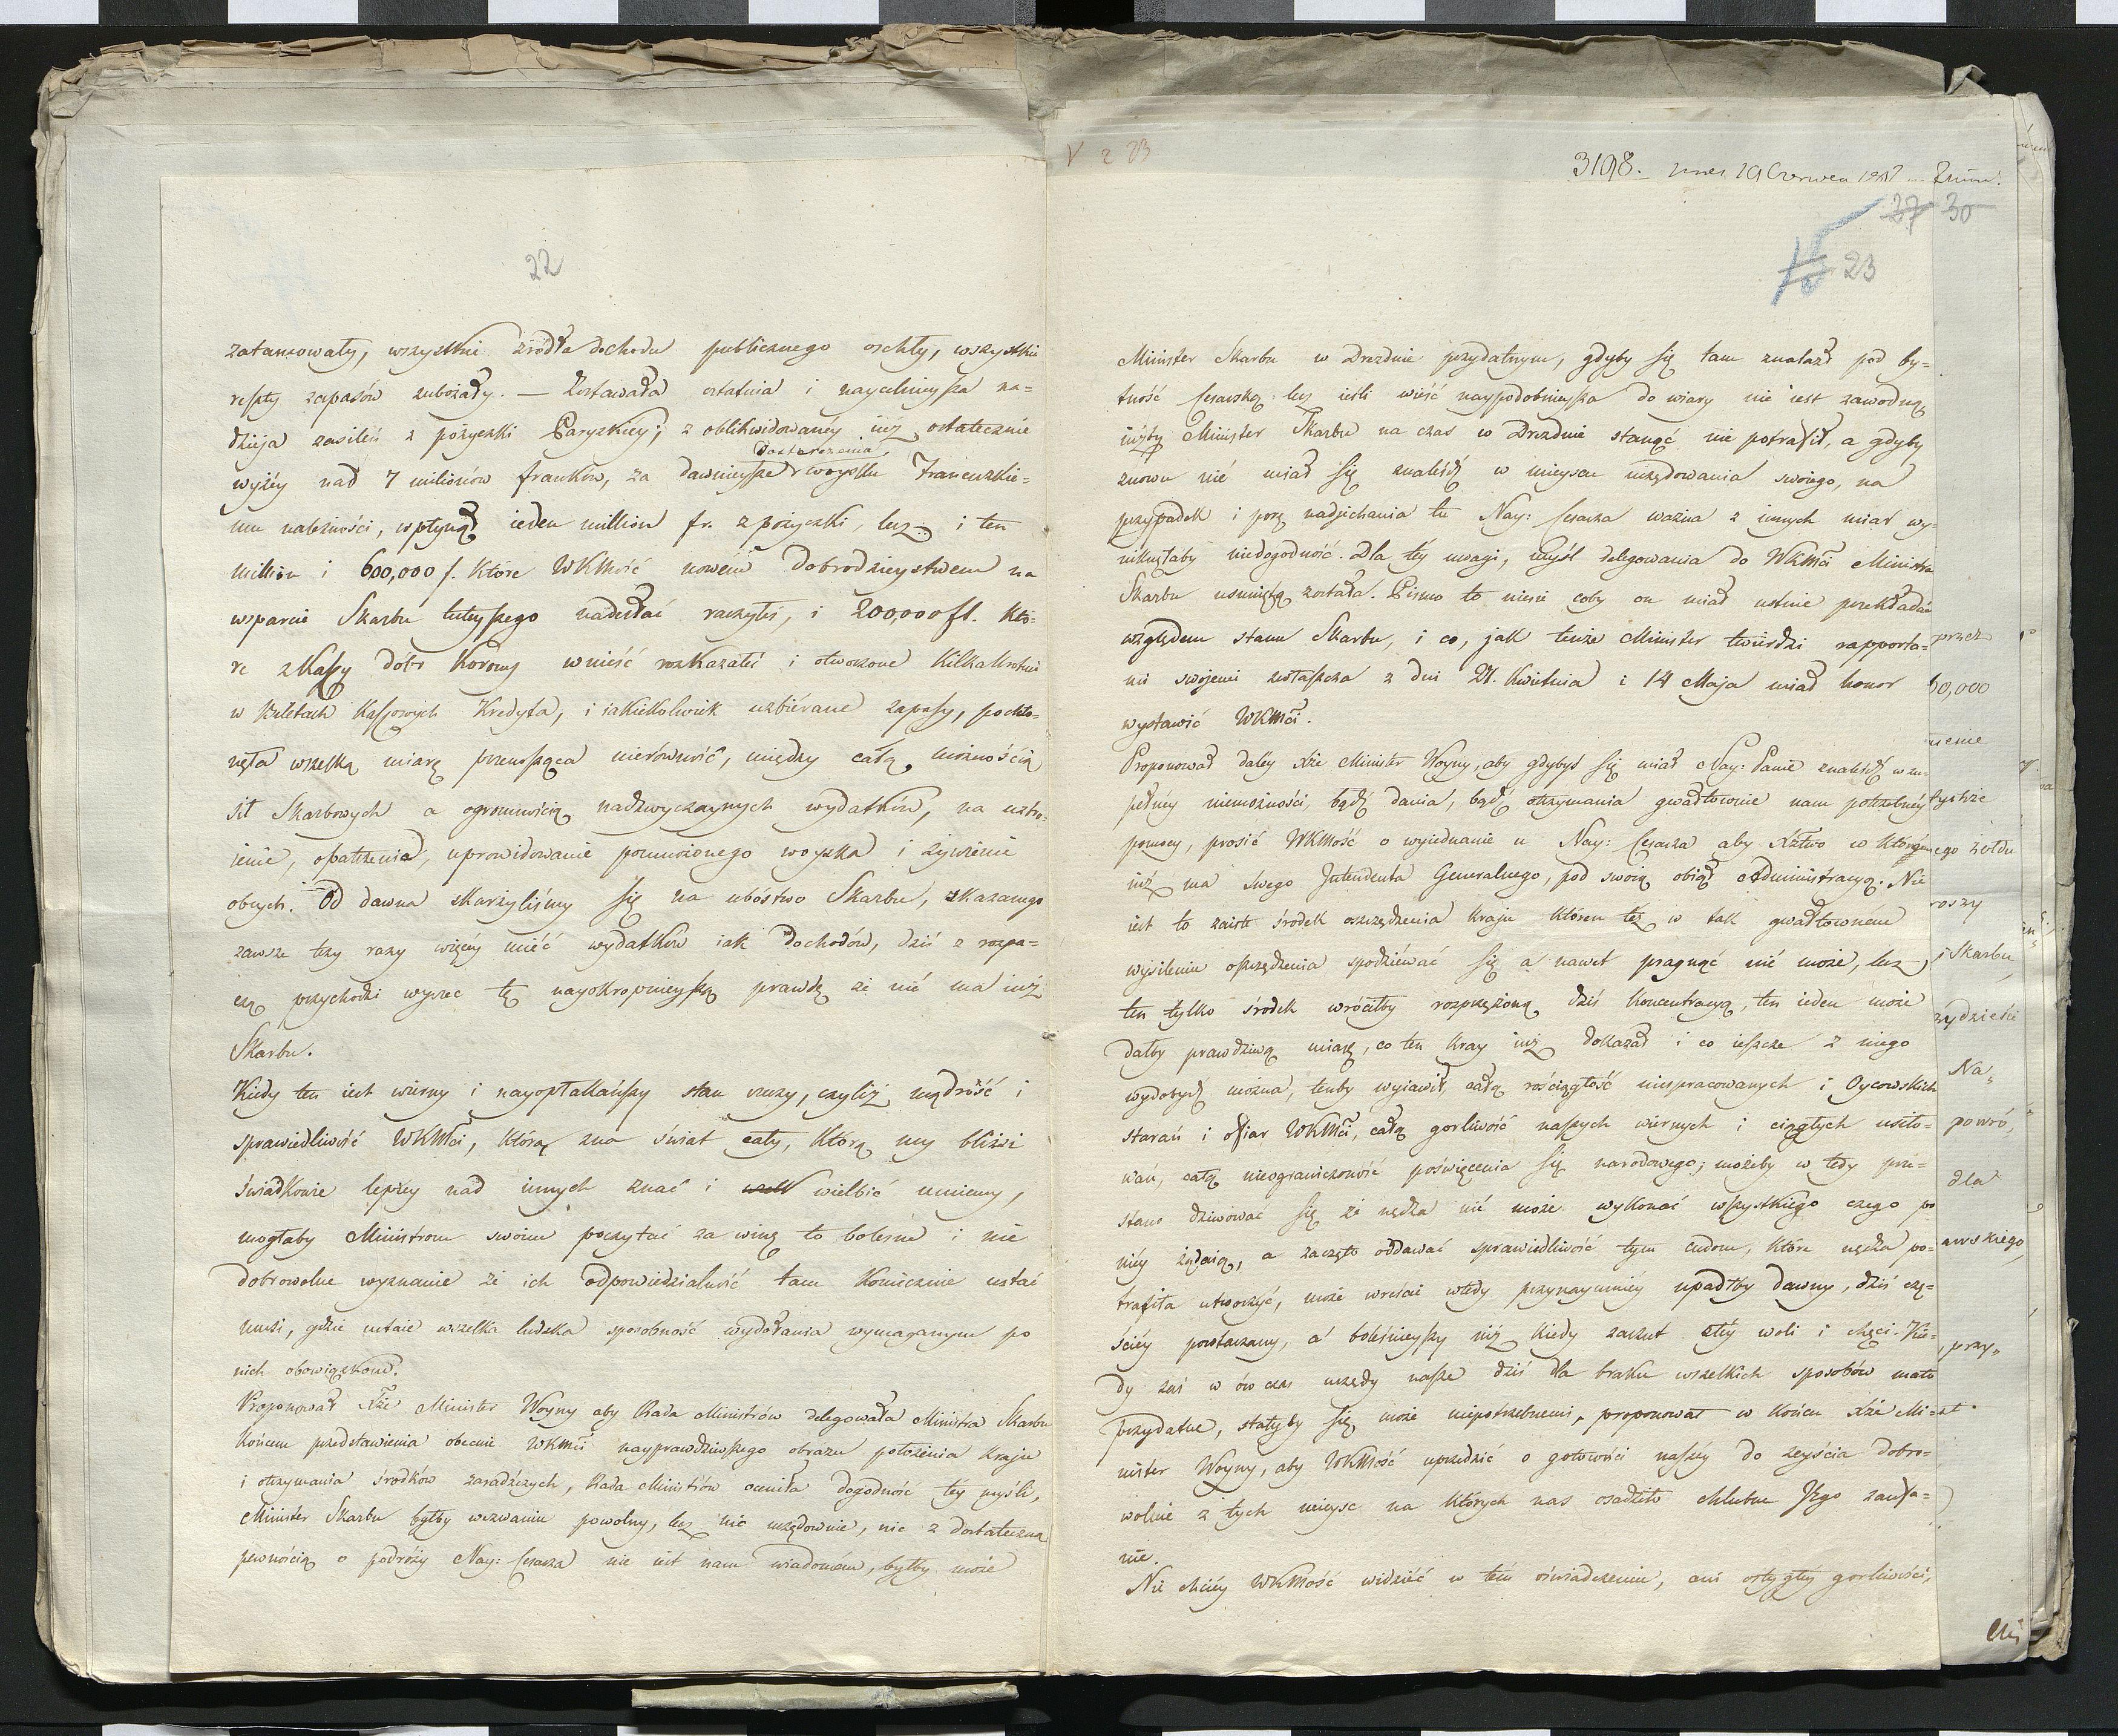 22
zatamowały, wszystkie źródła dochodu publicznego oschły, wszystkie
reszty zapasów zubożały. — Zostawała ostatnia i nayculnieysza na=
dzieja zasileń z pożyczki Paryzkiey; z oblikwidowaney iuż ostatecznie
wyżéy nad 7 milionów franków, za dawnieysze dostarczenia woysku Francuzkie=
mu należności, wpłynął ieden million fr. z pożyczki lecz i ten
million i 600,000 f. które WKMość nowém Dobrodzieystwem na
wsparcie Skarbu tuteyszego nadesłać raczyłeś, i 200,000 fl. któ=
re z kassy dóbr korony wnieść rozkazałeś i otworzone kilkakrotnie
w biletach kassowych kredyta, i iakiekolwiek uzbiérane zapasy, pochło=
nęła wszelką miarę przenosząca nierówność, między całą możnością
sił Skarbowych a ogromnością nadzwyczaynych wydatków, na uzbro=
ienie, opatrzenia, uprowidowanie pomnożonego woyska i żywienie
obcych. Od dawna skarżyliśmy się na ubóstwo Skarbu, skazanego
zawsze trzy razy więcéy mieć wydatków iak dochodów, dziś z rozpa=
czą przychodzi wyrzec tę nayokropnieyszą prawdę że nié ma iuż
Skarbu.
Kiedy ten iest wierny i nayopłakańszy stan rzeczy, czyliż mądrość i
sprawiedliwość WKMci, którą zna świat cały, którą my bliżsi
świadkowie lepiéy nad innych znać i wielbić umiemy,
mogłaby Ministrom swoim poczytać za winę to bolesne i nie
dobrowolne wyznanie że ich odpowiedzialność tam koniecznie ustać
musi, gdzie ustaie wszelka ludzka sposobność wydołania wymaganym po
nich obowiązkom.
Proponował Xże Minister Woyny aby Rada Ministrów delegowała Ministra Skarbu
końcem przedstawienia obecnie WKMci nayprawdziwszego obrazu położenia kraju
i otrzymania środków zaradczych, Rada Ministrów oceniła dogodność téy myśli,
Minister Skarbu byłby wezwaniu powolny, lecz nic urzędownie, nic z dostateczną
pewnością o podróży Nay: Cesarza nie iest nam wiadomém, byłby może
V 2 23
3198.
19 Czerwca
27 30
23
Minister Skarbu w Dreznie przydatnym, gdyby się tam znalazł pod by=
tność Cesarską lecz ieśli wieść naypodobnieysza do wiary nie iest zawodną
iużby Minister Skarbu na czas w Dreznie stanąć nie potrafił, a gdyby
znowu nié miał się znaleźć w mieyscu urzędowania swoiego, na
przypadek i porę nadjechania tu Nay: Cesarza ważna z innych miar wy=
niknęłaby niedogodność. Dla téy uwagi, myśl delegowania do WKMci Ministra
Skarbu usuniętą została. Pismo to niesie coby on miał ustnie przekładać
względem stanu Skarbu, i co, jak tenże Minister twierdzi rapporta=
mi swojemi zwłaszcza z dni 21. Kwietnia i 14 Maja miał honor
wystawić WKMci.
Proponował daléy Xże Minister Woyny, aby gdybyś się miał Nay: Panie znaleźć w zu=
pełnéy niemożności, bądź dania, bądź otrzymania gwałtownie nam potrzebnéy
pomocy, prosić WKMość o wyjednanie u Nay: Cesarza aby Xztwo w którym
iuż ma swego Intendenta Generalnego, pod swoią objął Administracyą. Nie
iest to zaiste środek oszczędzenia kraju którem też w tak gwałtowném
wysileniu oszczędzenia spodziéwać się a nawet pragnąć nié może, lecz
ten tylko środek wróciłby rozprzężoną dziś koncentracyą, ten ieden może
dałby prawdziwą miarę, co ten kray iuż dokazał i co ieszcze z niego
wydobydź można, tenby wyiawił całą rościągłość niespracowanych i Oycowskich
starań i ofiar WKMci, całą gorliwość naszych wiernych i ciągłych usiło=
wań, całą nieograniczoność poświęcenia się narodowego; możeby w tedy prze=
stano dziwować się że nędza nié może wykonać wszystkiego czego po
niéy żądaią, a zaczęto oddawać sprawiedliwość tym cudom, które nędza po=
trafiła utworzyć, może wreście wtedy przynaymniéy upadłby dawny, dziś czę=
ściéy powtarzany, a boleśnieyszy niż kiedy zarzut złéy woli i chęci. Kie=
dy zaś w ów czas urzędy nasze dziś dla braku wszelkich sposobów mało
przydatne, stałyby się może niepotrzebnemi, proponował w końcu Xże Mi=
nister Woyny, aby WKMość uprzedzić o gotowości naszéy do zeyścia dobro=
wolnie z tych mieysc na których nas osadziło chlubne Jego zaufa=
nie.
Nie chciéy WKMość widzieć w tém oświadczeniu, ani ostygłéy gorliwości,
przez
50,000
ucenie
tystże
ego żołdu
roszy
i Skarbu
zydzieści
Na,,
powró,,
dla
awskiego
przy,,